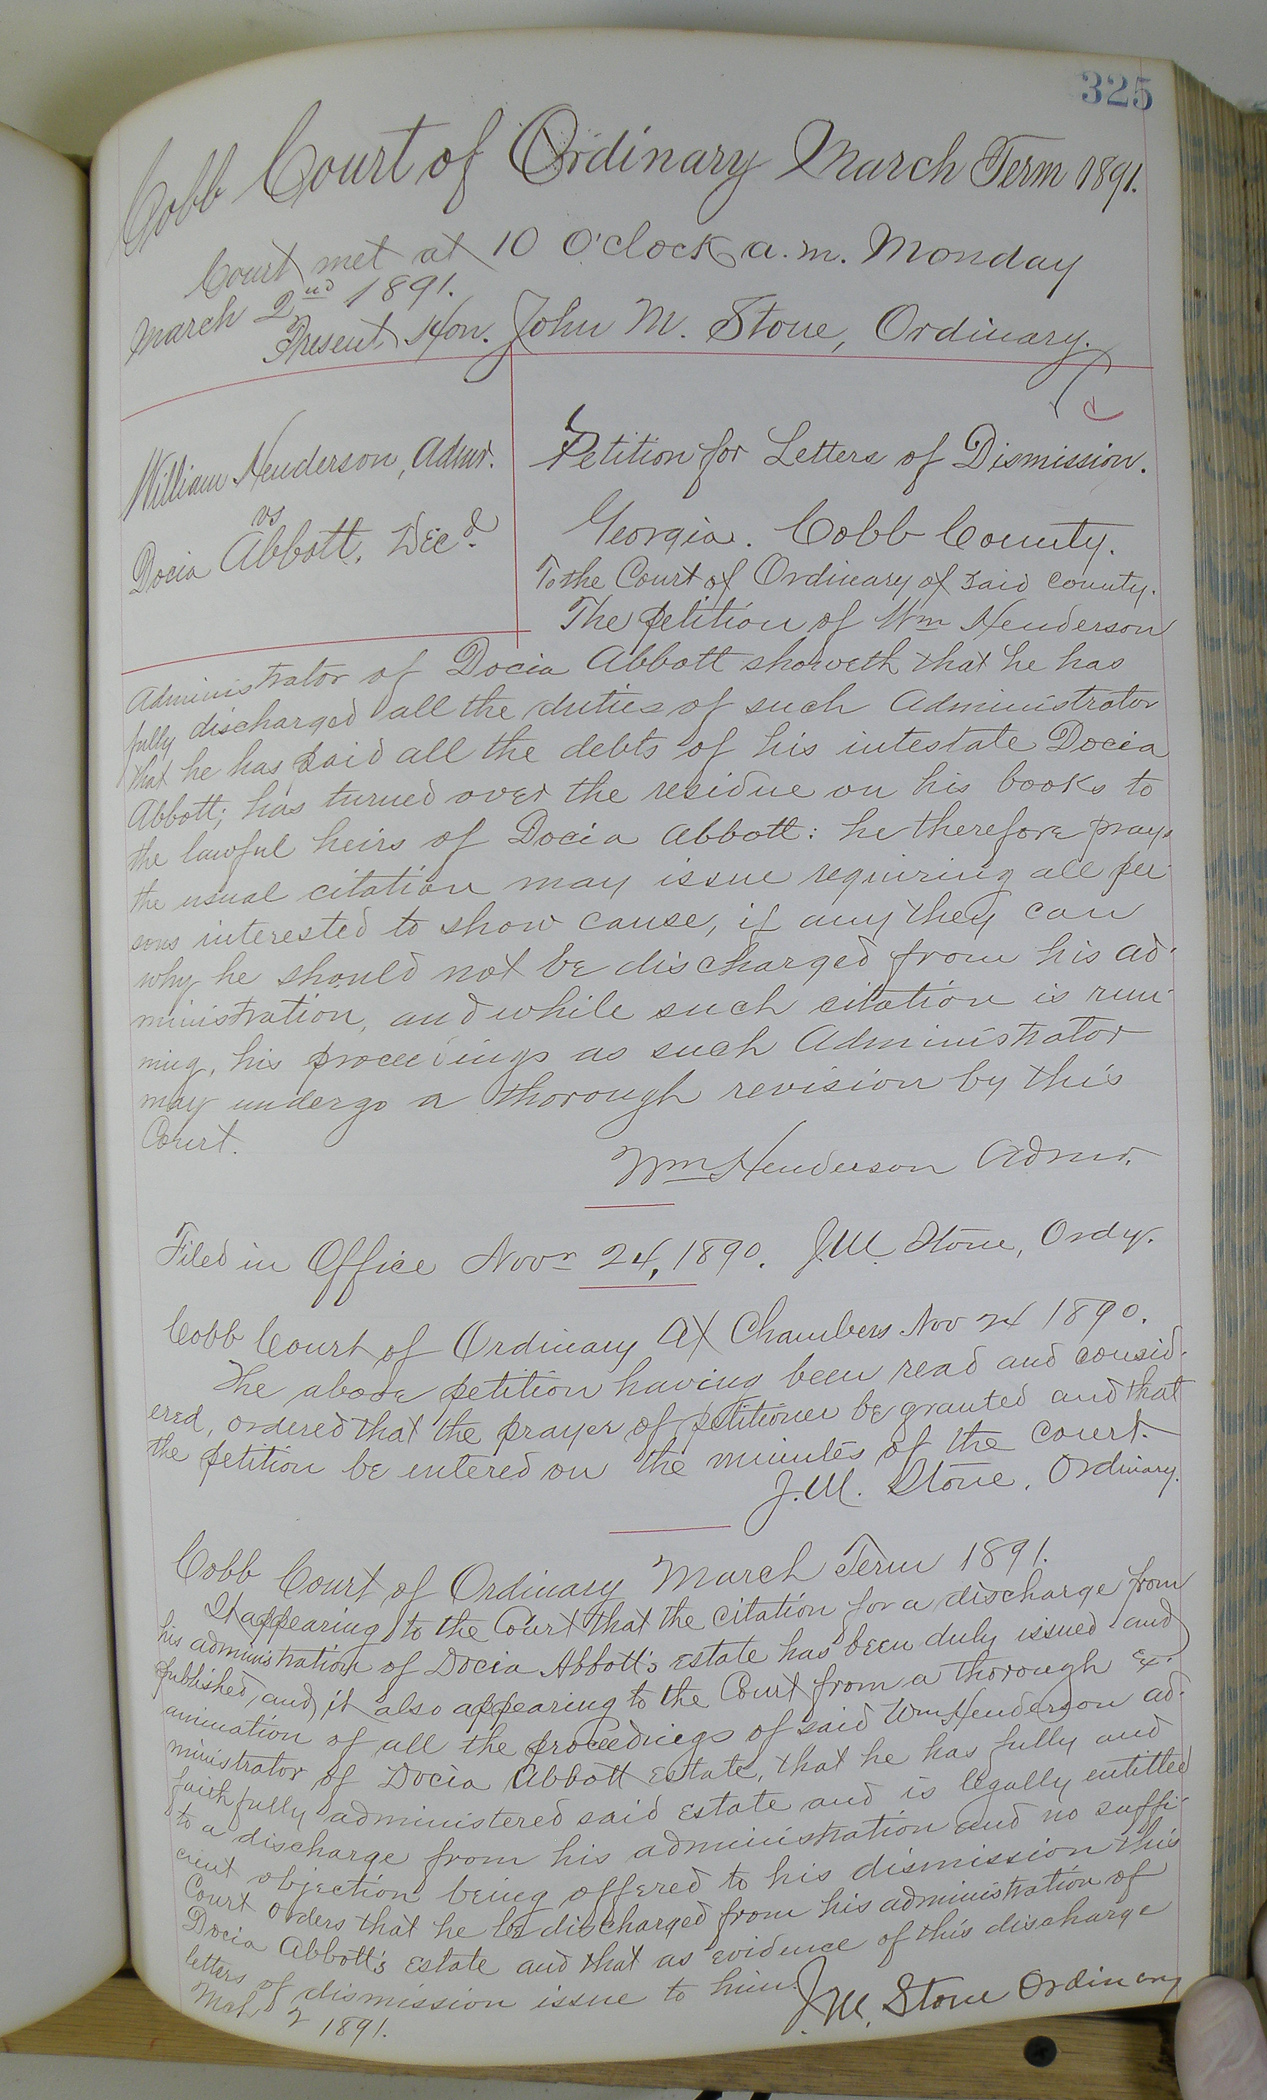 325
Cobb Court of Ordinary March Term 1891.
Court met at 10 O'clock a.m. Monday
March 2nd 1891.
Present Hon. John M. Stone, Ordinary.
William Henderson, Admr.
vs
Docia Abbott, Dec'd.
Petition for Letters of Dismission.
Georgia. Cobb County.
To the Court of Ordinary of said county.
The petition of Wm Henderson
Administrator of Docia Abbott showeth that he has
fully discharged all the duties of such Administrator
that he has paid all the debts of his intestate Docia
Abbott; has turned over the residue on his books to
the lawful heirs of Docia Abbott: he therefore prays
the usual citation may issue requiring all per-
sons interested to show cause, if any they can
why he should not be discharged from his ad-
ministration, and while such citation is run-
ning, his proceedings as such Administrator
may undergo a thorough revision by this
Court.
Wm Henderson Admr.
Filed in Office Novr 24, 1890. J.M. Stone, Ordy.
Cobb Court of Ordinary At Chambers Nov 24 1890.
The above petition having been read and consid-
ered, ordered that the prayer of petitioner be granted and that
the petition be entered on the minutes of the court.
J.M. Stone, Ordinary.
Cobb Court of Ordinary March Term 1891.
It appearing to the Court that the citation for a discharge from
his administration of Docia Abbott's estate has been duly issued and
published, and it also appearing to the Court from a thorough ex-
amination of all the proceedings of said Wm Henderson ad-
ministrator of Docia Abbott estate, that he has fully and
faithfully administered said estate and is legally entitled
to a discharge from his administration and no suffi-
cient objection being offered to his dismission this
Court orders that he be discharged from his administration of
Docia Abbott's estate and that as evidence of this discharge
letters of dismission issue to him.
Mch 2 1891.
J.M. Stone Ordinary